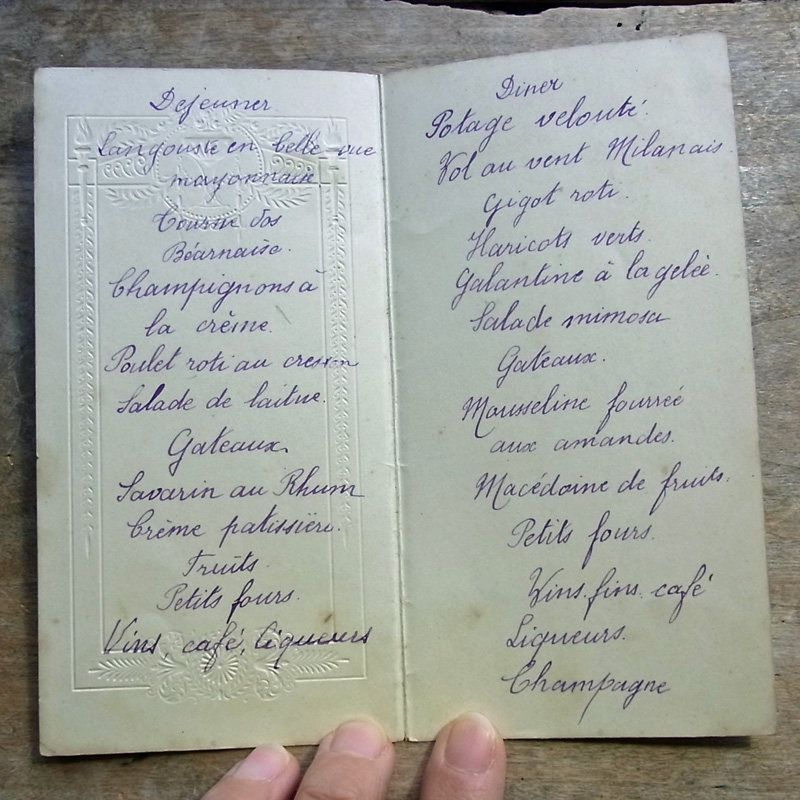 Dejeuner
Langouste en belle vue
mayonnaise
Tourne dos
Béarnaise.
Champignons à
la crême.
Poulet roti au cresson
Salade de laitue.
Gateaux.
Savarin au Rhum
Crème patissière.
Fruits.
Petits fours.
Vins, café, liqueurs
Diner
Potage velouté.
Vol au vent Milanais.
Gigot roti.
Haricots verts.
Galantine à la gelée.
Salade mimosa
Gateaux.
Mousseline fourrée
aux amandes.
Macédoine de fruits.
Petits fours.
Vins fins café
Liqueurs.
Champagne